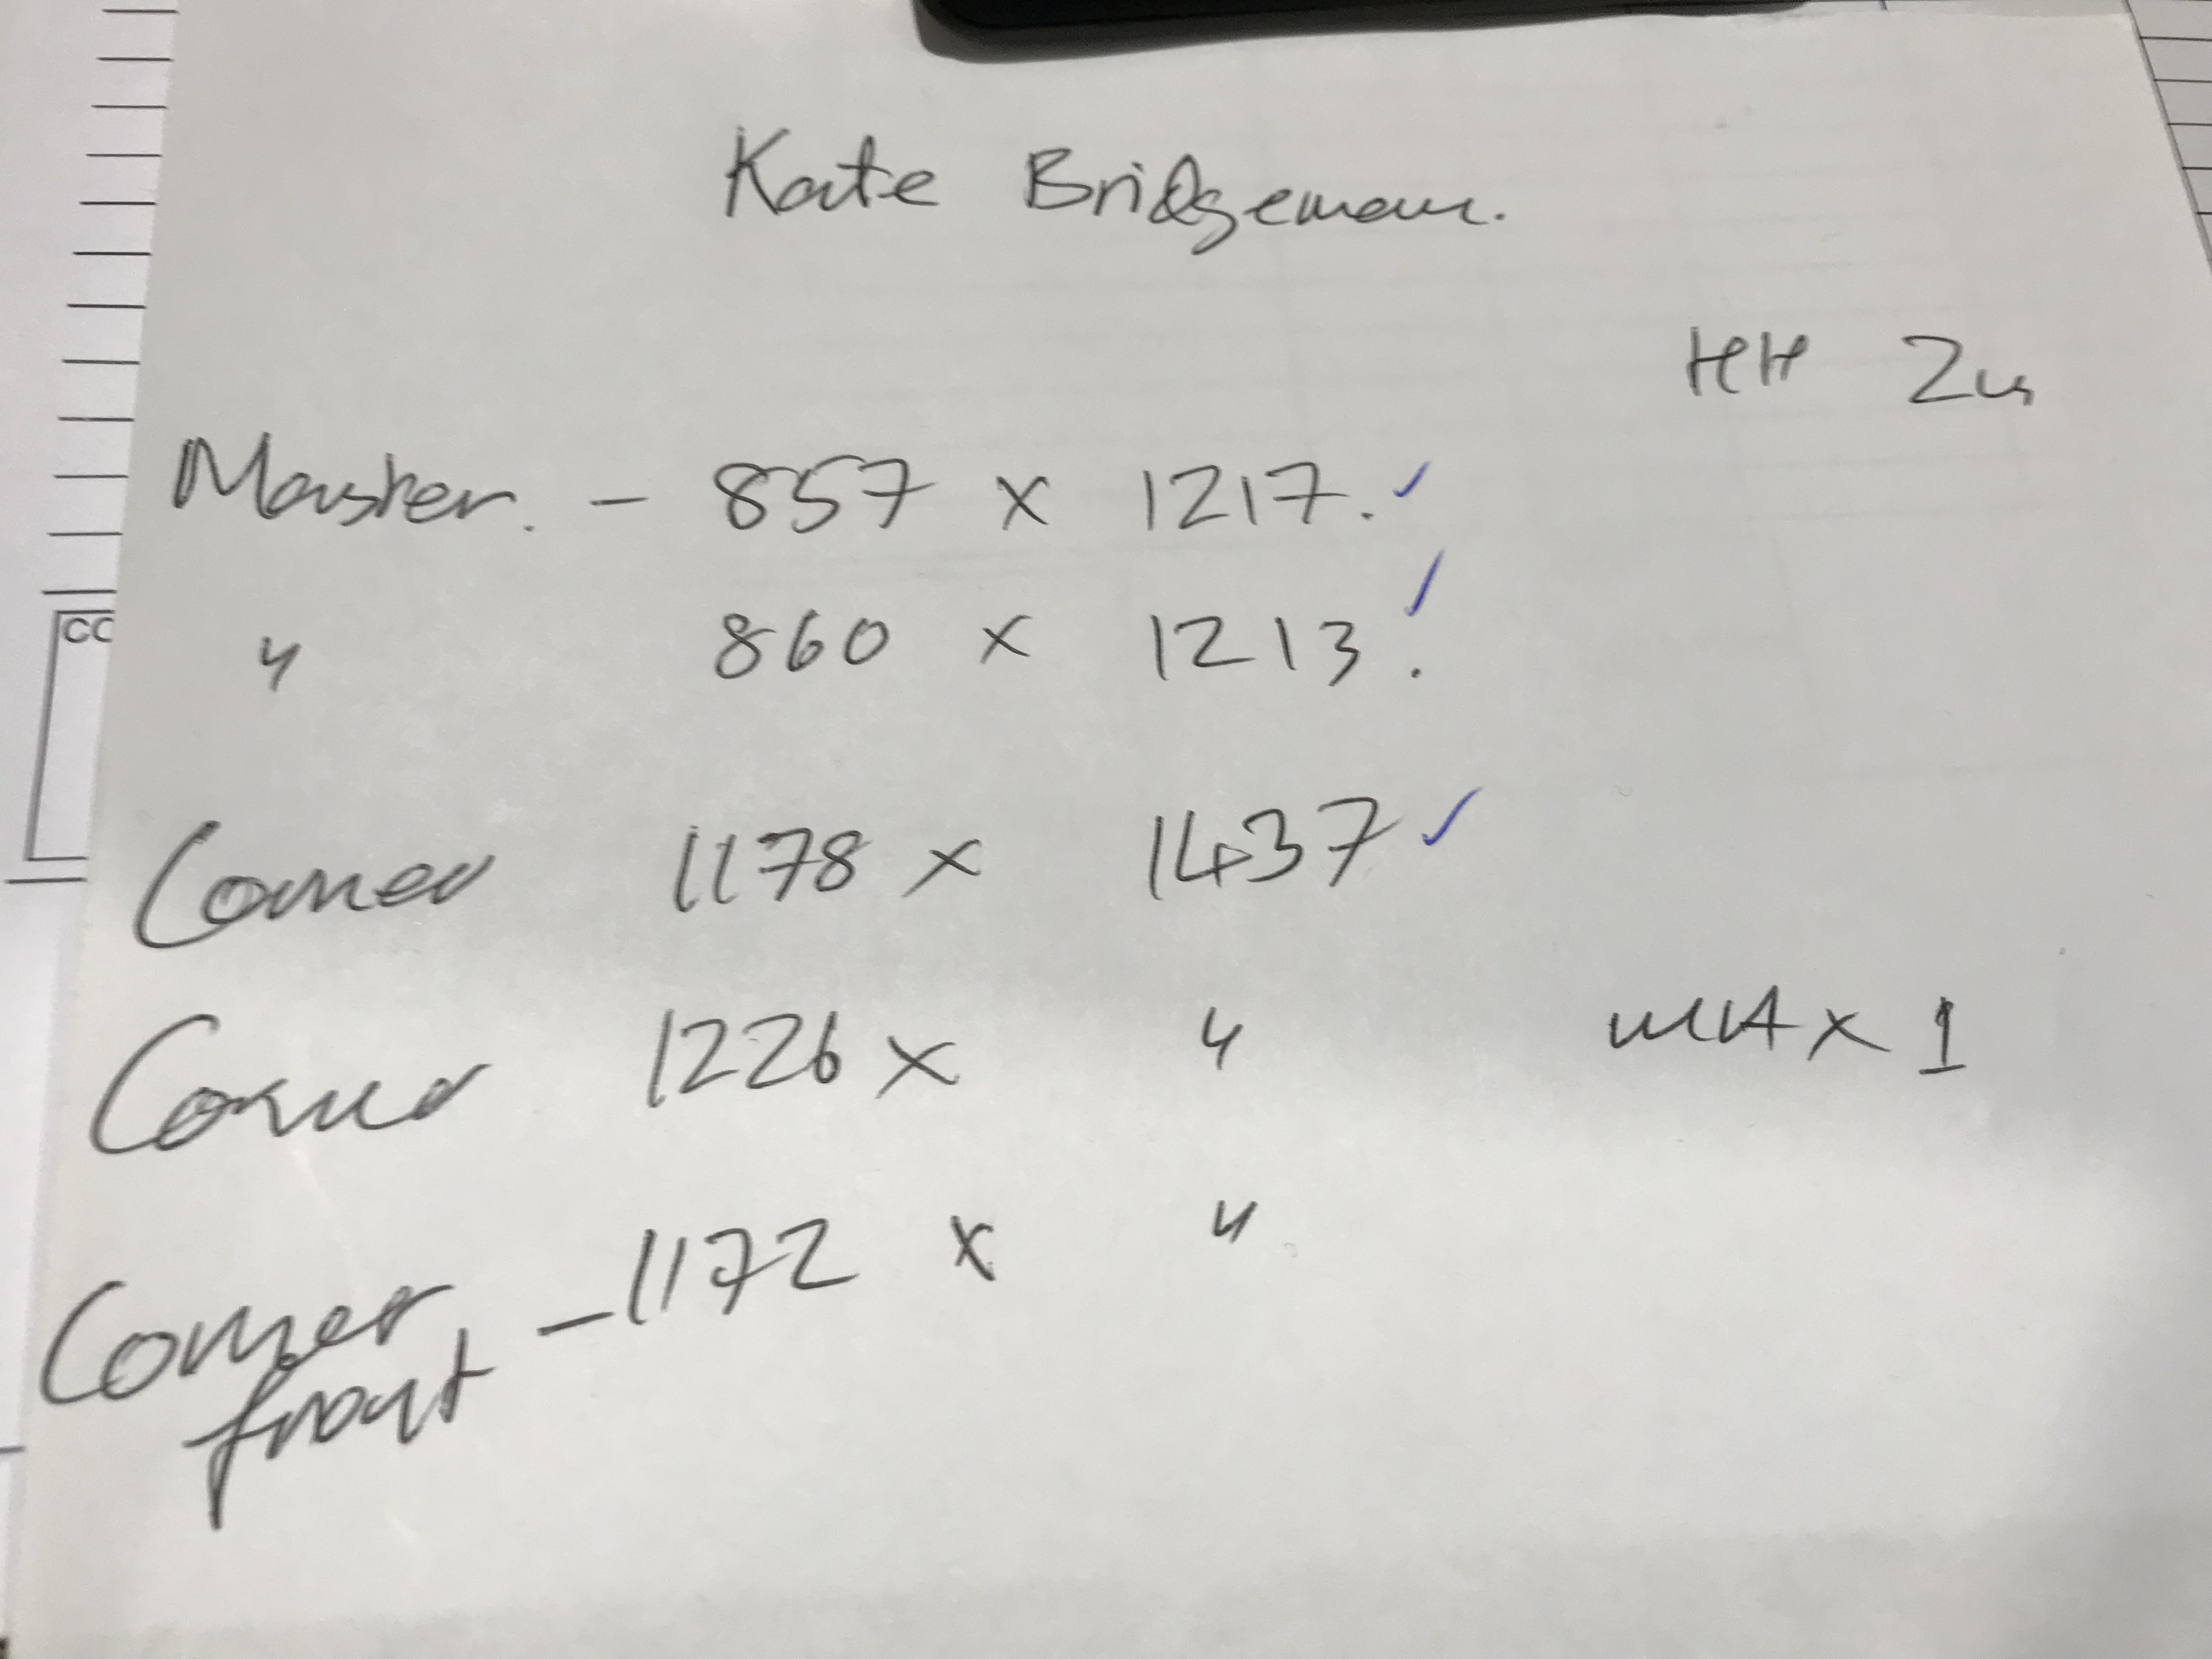 Kate Bridgeman.
HH 24
Master. - 857 x 1217.
" 860 x 1213.
CC
Corner 1178 x 1437
Corner 1226 x " MAX 1
Corner front - 1172 x "